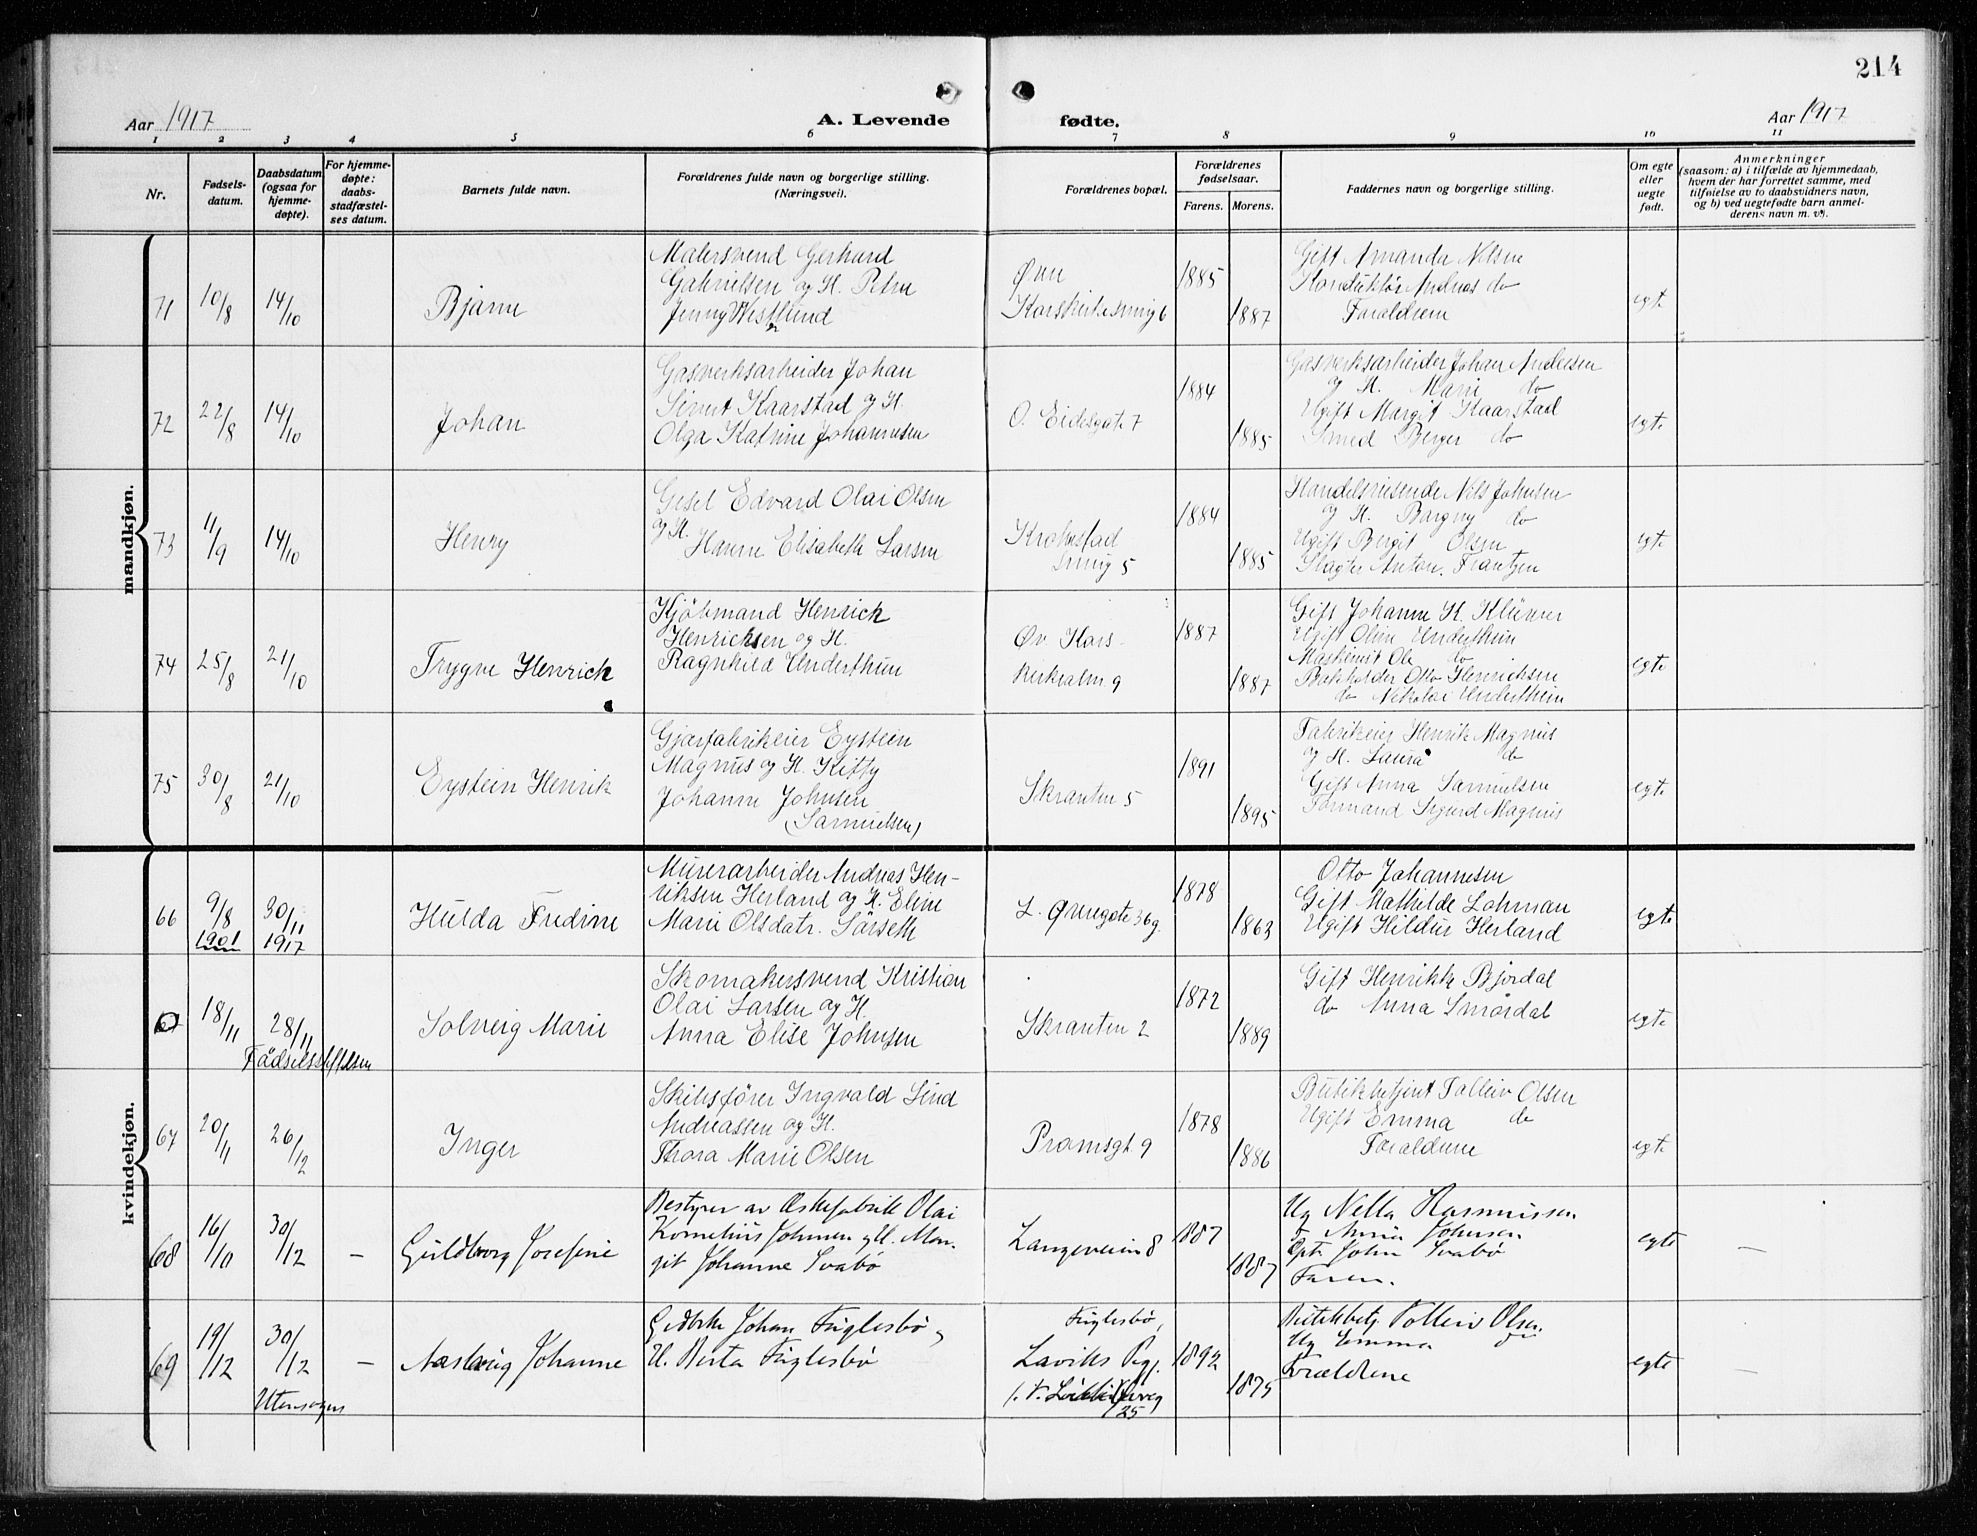 214
Aar 1917
A. Levende fødte.
Aar 1917
1 2 3 4 5 6 7 8 9 10 11
Nr.
Fødsels-
datum.
Daabsdatum
(ogsaa for
hjemme-
døpte).
For hjemme-
døpte:
daabs-
stadfæstel-
ses datum.
Barnets fulde navn.
Forældrenes fulde navn og borgerlige stilling.
(Næringsvei).
Forældrenes bopæl.
Forældrenes
fødselsaar.
Farens. Morens.
Faddernes navn og borgerlige stilling.
Om egte
eller
uegte
født.
Anmerkninger
(saasom: a) i tilfælde av hjemmedaab,
hvem der har forrettet samme, med
tilføielse av to daabsvidners navn,
og b) ved uegtefødte barn anmel-
derens navn m. v.).
mandkjøn.
71
10/8
14/10
Bjarne
Malersvend Gerhard
Gabrielsen og H. Petra
Jenny Westlund
Øvre
Korskirkesmug 6
1885
1887
Gift Amanda Nilsen
Konduktør Andreas do
Forældrene
egte
72
22/8
14/10
Johan
Gasverksarbeider Johan
Sivert Kaarstad og H.
Olga Katrine Johannesen
O. Eidesgate 7
1884
1885
Gasverksarbeider Johan Andersen
og H. Marie do
Ugift Margit Kaarstad
Smed Berger do
egte
73
11/9
14/10
Henry
Gesel Edvard Olai Olsen
og H.
Hanne Elisabeth Larsen
Krohnstad
smug 5
1884
1885
Handelsreisende Nils Johnsen
og H. Borgny do
Ugift Bergit Olsen
Slagter Anton Frantzen
egte
74
25/8
21/10
Trygve Henrick
Kjøbmand Henrick
Henricksen og H.
Ragnhild Underthun
Øv. Kors-
kirkealm 9
1887
1887
Gift Johanne H. Klüwer
Ugift Oline Underthun
Maskinist Ole do
Bokholder Otto Henricksen
do Nikolai Underthun
egte
75
30/8
21/10
Eystein Henrik
Gjærfabrikeier Eystein
Magnus og H. Kitty
Johanne Johnsen
(Samuelsen)
Skranten 5
1891
1895
Fabrikeier Henrik Magnus
og H. Laura do
Gift Anna Samuelsen
Formand Sigurd Magnus
egte
kvindekjøn.
66
9/8
1901
30/11
1917
Hulda Fredine
Murerarbeider Andreas Hen-
riksen Herland og H. Eline
Marie Olsdatr. Sörseth
L. Øvregate 36g
1878
1863
Otto Johannesen
Gift Mathilde Lohman
Ugift Hildur Herland
egte
18/11
28/11
Fødselsstiftelsen
Solveig Marie
Skomakersvend Kristian
Olai Larsen og H.
Anna Elise Johnsen
Skranten 2
1872
1889
Gift Henrikke Bjordal
do Anna Smördal
egte
67
20/11
26/12
Inger
Skibsfører Ingvald Lind
Andreassen og H.
Thora Marie Olsen
Pramsgt 9
1878
1886
Butikbetjent Tolleiv Olsen
Ugift Emma do
Forældrene
egte
68
16/10
30/12
–
Guldborg Josefine
Bestyrer av Æskefabrik Olai
Kornelius Johnsen og H. Mar-
git Johanne Svabø
Langeveien 8
1887
1887
Ug Nella Rasmussen
Anna Johnsen
John Svabø
Faren.
egte
–
69
19/12
30/12
Utensogns
–
Aaslaug Johanne
Gidbr Johan Fuglesbø,
H. Berta Fuglesbø
Fuglesbø,
Laviks Pgj.
25
1892
1875
Butikbetj. Tolleiv Olsen
Ug Emma do
Forældrene
egte
–